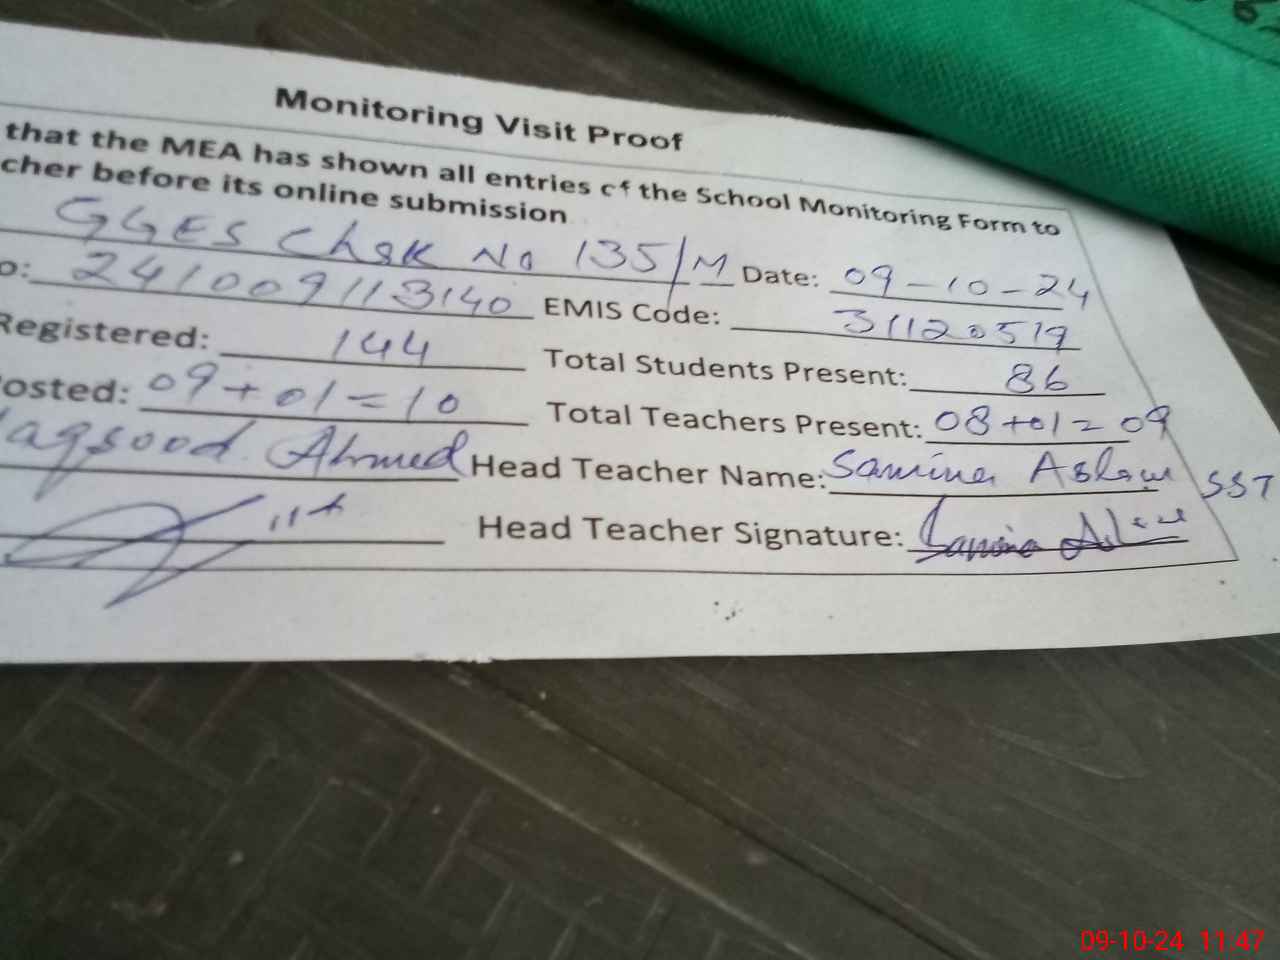 Monitoring Visit Proof
that the MEA has shown all entries of the School Monitoring Form to
cher before its online submission
GGES Chak No 135/M Date: 09-10-24
o: 241009113140 EMIS Code: 31120519
Registered: 144 Total Students Present: 86
osted: 09+01=10 Total Teachers Present: 08+01=09
aqsood Ahmed Head Teacher Name: Samina Aslam SST
Head Teacher Signature: Samina Aslam
09-10-24 11:47